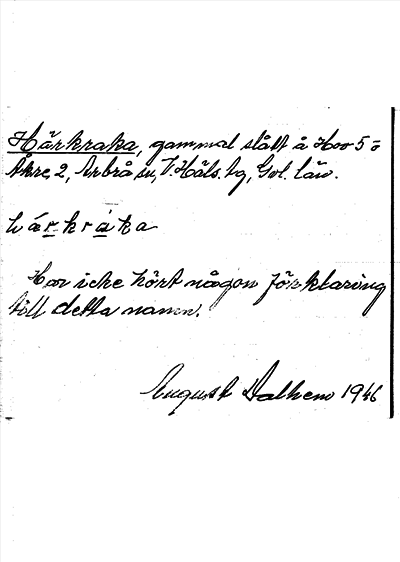 Härkraka, gammal slått å Hov 5 ö
Åkre, 2, Arbrå sn, V. Häls. tg, Gvl. län.
hárkràka
Har icke hört någon förklaring
till detta namn.
August Dalhem 1946